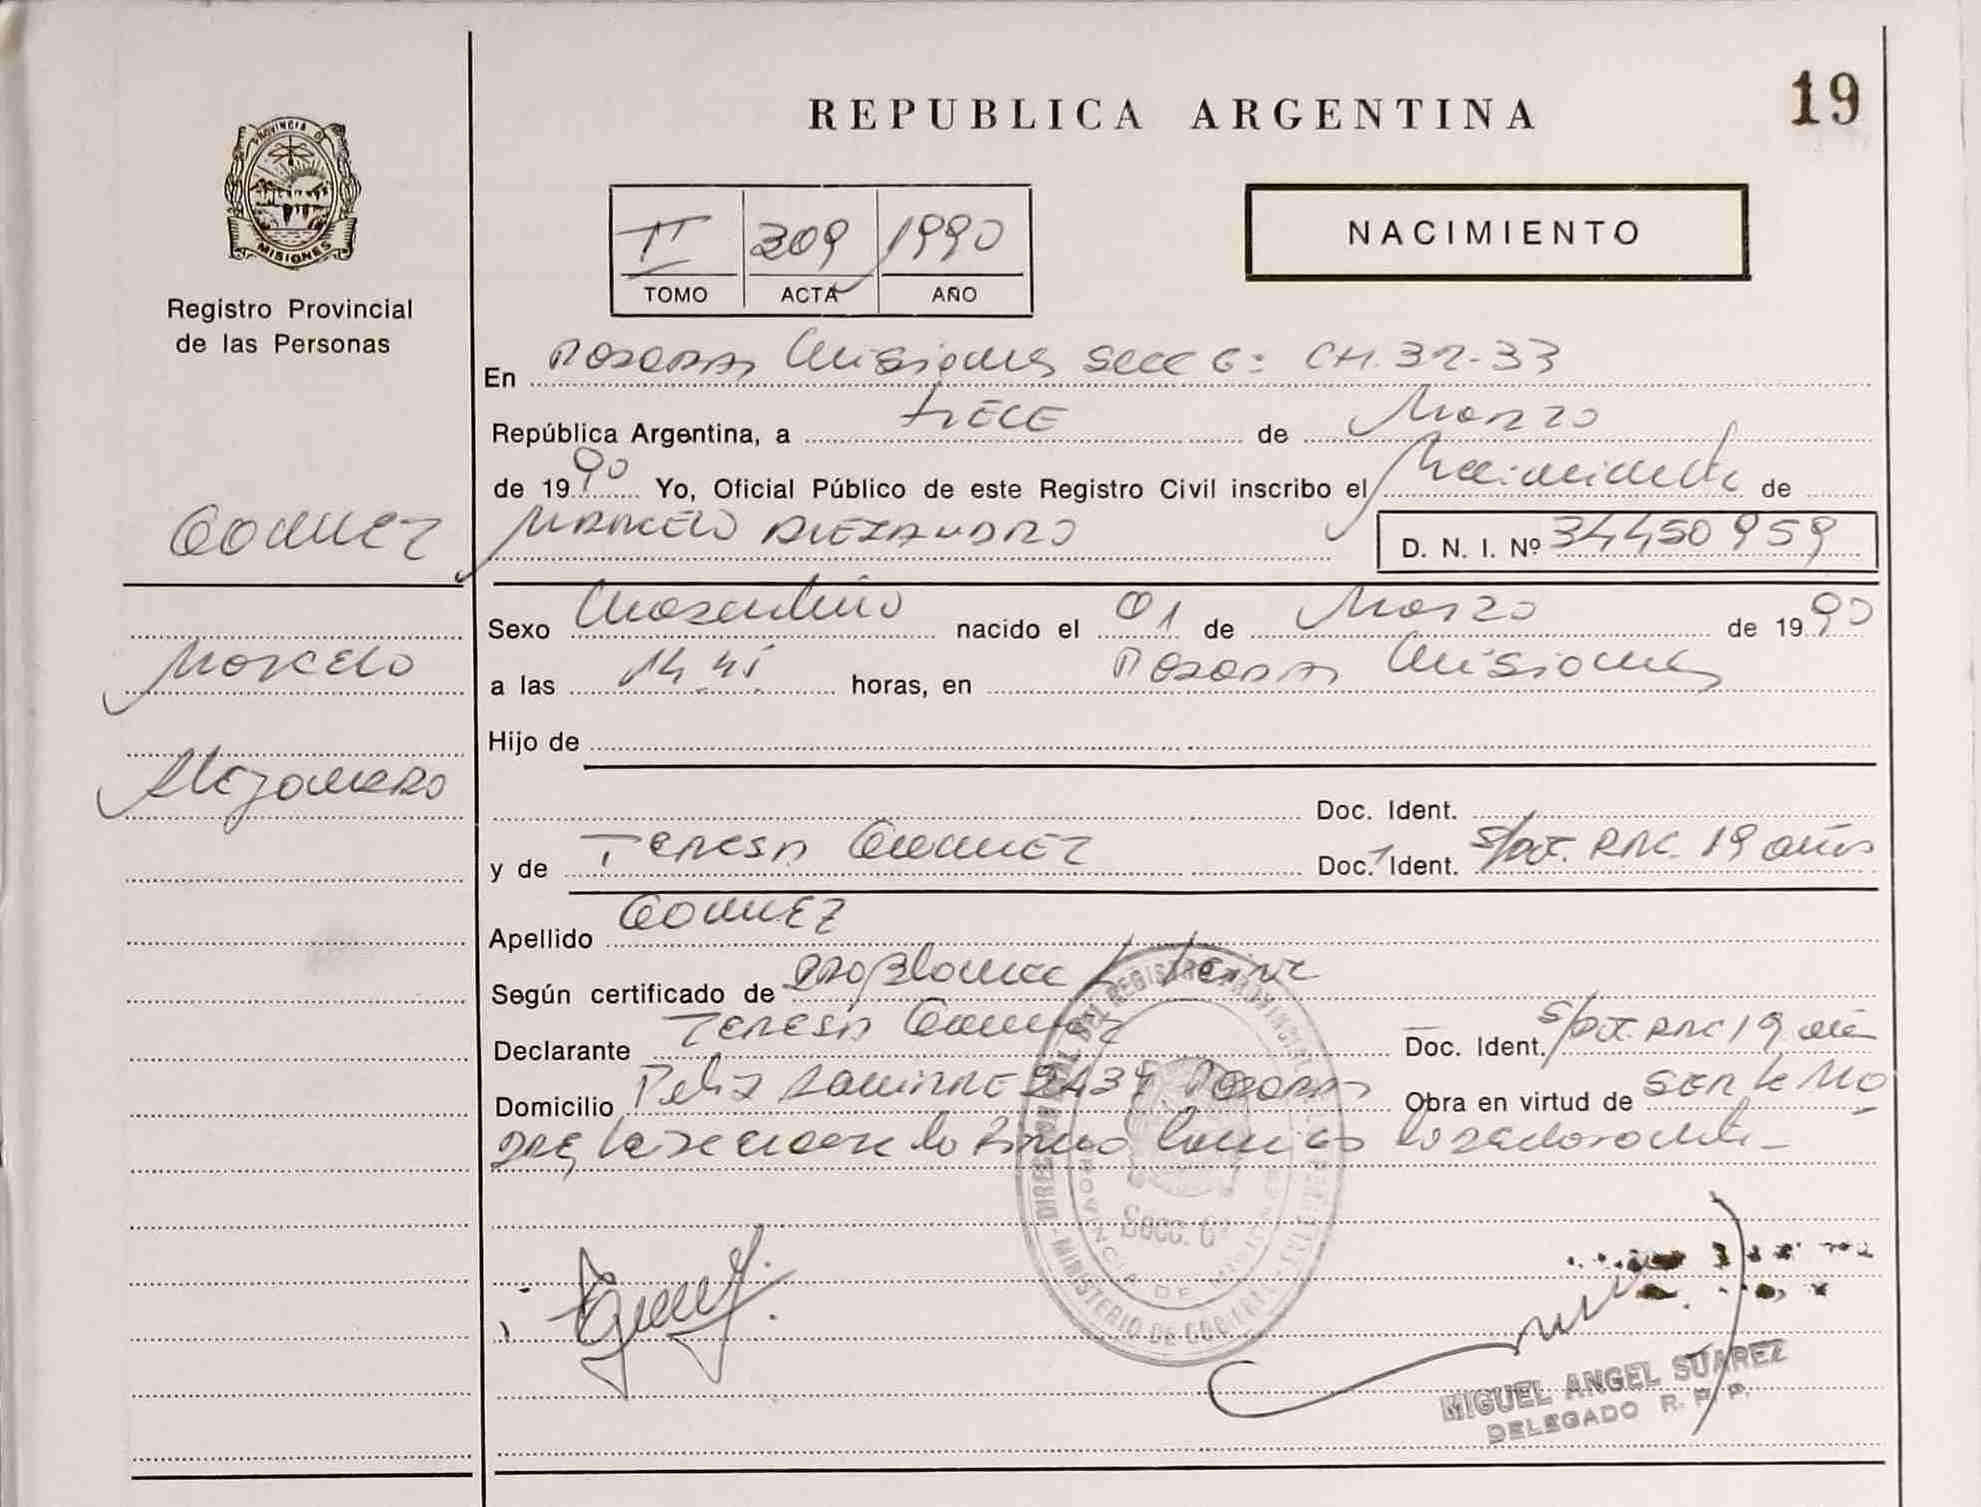 19
REPUBLICA ARGENTINA
PROVINCIA DE
MISIONES
Registro Provincial
de las Personas
II 309 1990
TOMO ACTA AÑO
NACIMIENTO
En Posadas Misiones Secc 6: CH. 32-33
República Argentina, a trece de Marzo
de 1990 Yo, Oficial Público de este Registro Civil inscribo el Nacimiento de
MARCELO ALEJANDRO D. N. I. Nº 34450959
GOMEZ
Marcelo
Alejandro
Sexo Masculino nacido el 01 de Marzo de 1990
a las horas, en Posadas Misiones
Hijo de
Doc. Ident.
y de TERESA GOMEZ Doc. Ident. 19 años
Apellido GOMEZ
Según certificado de
Declarante TERESA Gomez Doc. Ident. 19
Domicilio Felix Posadas Obra en virtud de SER la MA
DRE
DIRECCION GRAL DEL REGISTRO PROVINCIAL DE LAS PERSONAS
MINISTERIO DE GOBIERNO
PROVINCIA DE MISIONES
Secc. 6ª
MIGUEL ANGEL SUAREZ
DELEGADO R. P. P.